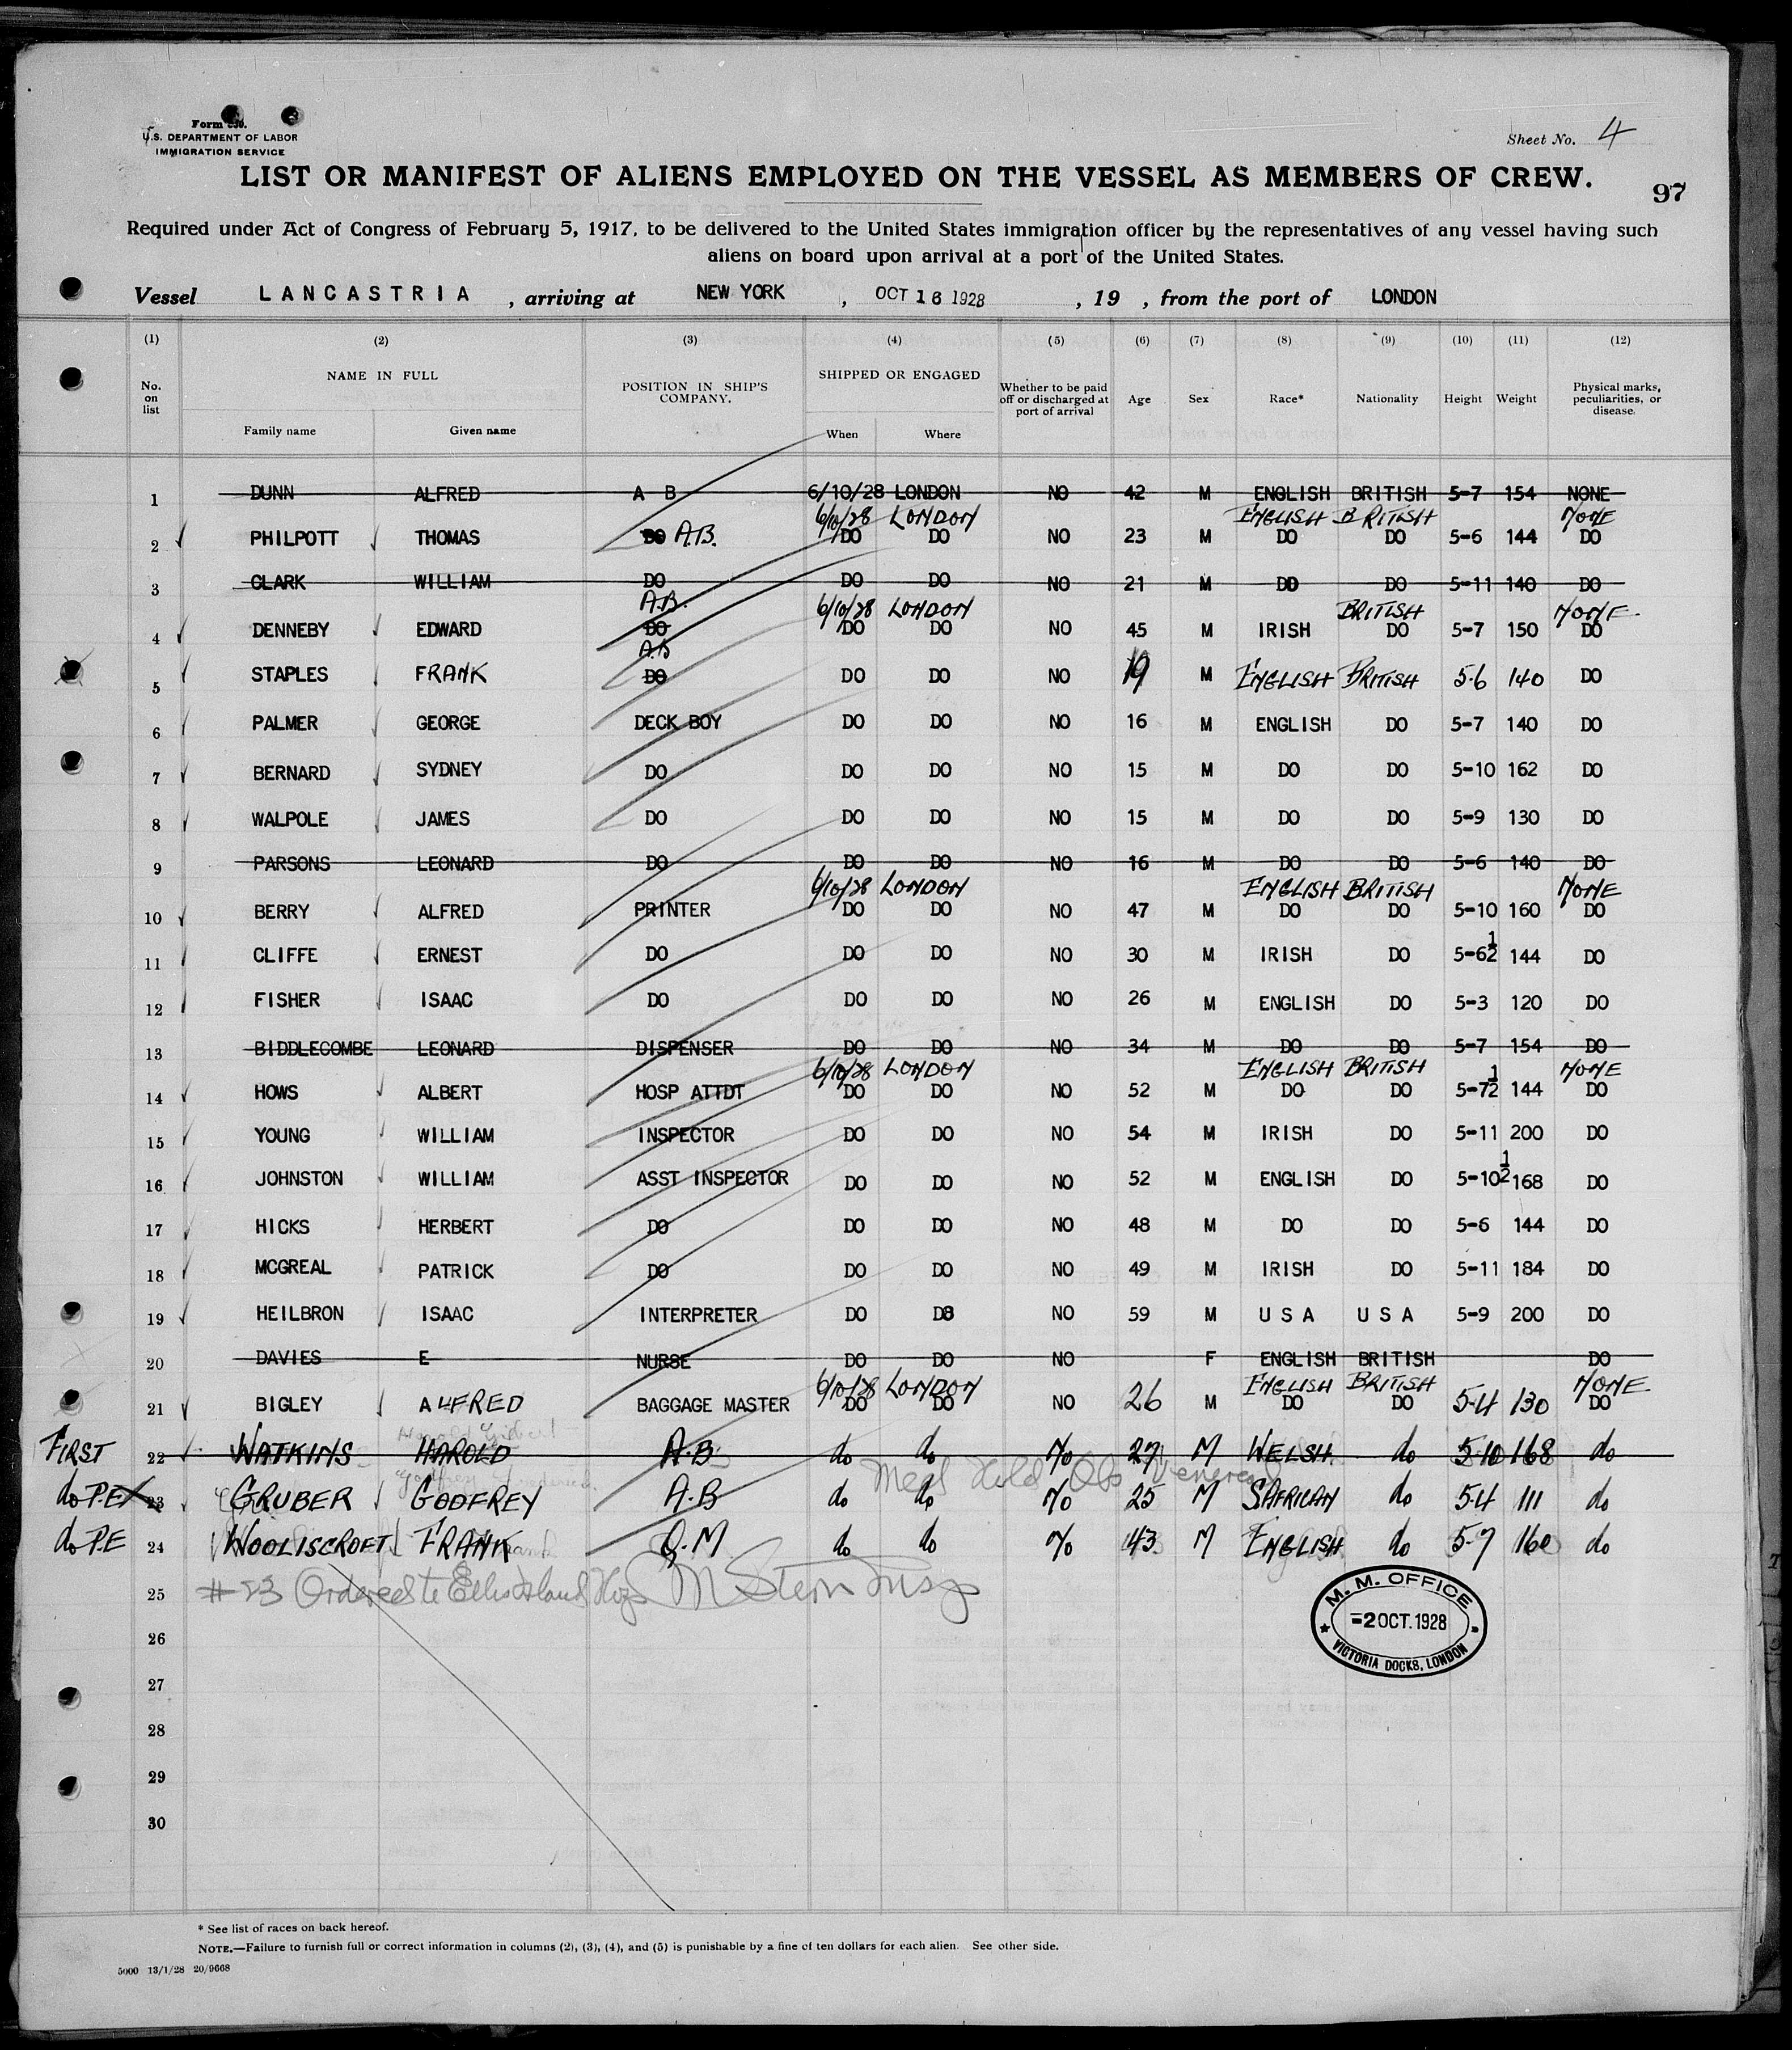 Form 680.
U.S. DEPARTMENT OF LABOR
IMMIGRATION SERVICE
Sheet No. 4
LIST OR MANIFEST OF ALIENS EMPLOYED ON THE VESSEL AS MEMBERS OF CREW.
97
Required under Act of Congress of February 5, 1917, to be delivered to the United States immigration officer by the representatives of any vessel having such
aliens on board upon arrival at a port of the United States.
Vessel LANCASTRIA , arriving at NEW YORK , OCT 16 1928 , 19 , from the port of LONDON
(1) (2) (3) (4) (5) (6) (7) (8) (9) (10) (11) (12)
No. on list NAME IN FULL POSITION IN SHIP'S COMPANY. SHIPPED OR ENGAGED Whether to be paid off or discharged at port of arrival Age Sex Race* Nationality Height Weight Physical marks, peculiarities, or disease.
Family name Given name When Where
1 DUNN ALFRED A B 6/10/28 LONDON NO 42 M ENGLISH BRITISH 5-7 154 NONE
6/10/28 LONDON ENGLISH BRITISH NONE
2 PHILPOTT THOMAS DO A.B. DO DO NO 23 M DO DO 5-6 144 DO
3 CLARK WILLIAM DO DO DO NO 21 M DO DO 5-11 140 DO
A.B. 6/10/28 LONDON BRITISH NONE
4 DENNEBY EDWARD DO DO DO NO 45 M IRISH DO 5-7 150 DO
A.B
5 STAPLES FRANK DO DO DO NO 19 M ENGLISH BRITISH 5.6 140 DO
6 PALMER GEORGE DECK BOY DO DO NO 16 M ENGLISH DO 5-7 140 DO
7 BERNARD SYDNEY DO DO DO NO 15 M DO DO 5-10 162 DO
8 WALPOLE JAMES DO DO DO NO 15 M DO DO 5-9 130 DO
9 PARSONS LEONARD DO DO DO NO 16 M DO DO 5-6 140 DO
6/10/28 LONDON ENGLISH BRITISH NONE
10 BERRY ALFRED PRINTER DO DO NO 47 M DO DO 5-10 160 DO
11 CLIFFE ERNEST DO DO DO NO 30 M IRISH DO 5-6½ 144 DO
12 FISHER ISAAC DO DO DO NO 26 M ENGLISH DO 5-3 120 DO
13 BIDDLECOMBE LEONARD DISPENSER DO DO NO 34 M DO DO 5-7 154 DO
6/10/28 LONDON ENGLISH BRITISH NONE
14 HOWS ALBERT HOSP ATTDT DO DO NO 52 M DO DO 5-7½ 144 DO
15 YOUNG WILLIAM INSPECTOR DO DO NO 54 M IRISH DO 5-11 200 DO
16 JOHNSTON WILLIAM ASST INSPECTOR DO DO NO 52 M ENGLISH DO 5-10½ 168 DO
17 HICKS HERBERT DO DO DO NO 48 M DO DO 5-6 144 DO
18 MCGREAL PATRICK DO DO DO NO 49 M IRISH DO 5-11 184 DO
19 HEILBRON ISAAC INTERPRETER DO DO NO 59 M U S A U S A 5-9 200 DO
20 DAVIES E NURSE DO DO NO F ENGLISH BRITISH DO
6/10/28 LONDON ENGLISH BRITISH NONE
21 BIGLEY ALFRED BAGGAGE MASTER DO DO NO 26 M DO DO 5.4 130 DO
FIRST 22 WATKINS HAROLD A.B. do do No 27 M WELSH do 5.10 168 do
Medl Held Obs Venereal
do P.E 23 GRUBER GODFREY A.B do do No 25 M S AFRICAN do 5.4 111 do
do P.E 24 WOOLISCROFT FRANK Q.M do do No 43 M ENGLISH do 5.7 160 do
25 #23 Ordered to Ellis Island M Stern Insp
26
27
28
29
30
M. M. OFFICE
=2 OCT. 1928
VICTORIA DOCKS, LONDON
* See list of races on back hereof.
NOTE.—Failure to furnish full or correct information in columns (2), (3), (4), and (5) is punishable by a fine of ten dollars for each alien. See other side.
5000 13/1/28 20/9668